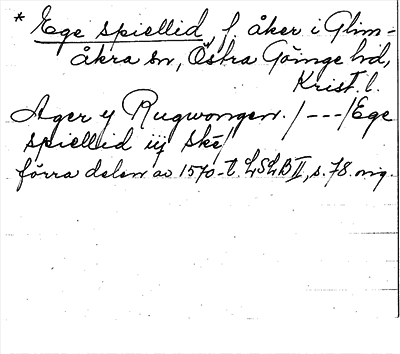 * Ege spiellid, f. åker i Glim-
åkra sn, Östra Göinge hd,
Krist. l.
Ager y Rugwongen. / --- / Ege
spiellid iij ske/
förra delen av 1570-t. LSLB II, s. 78. ng.